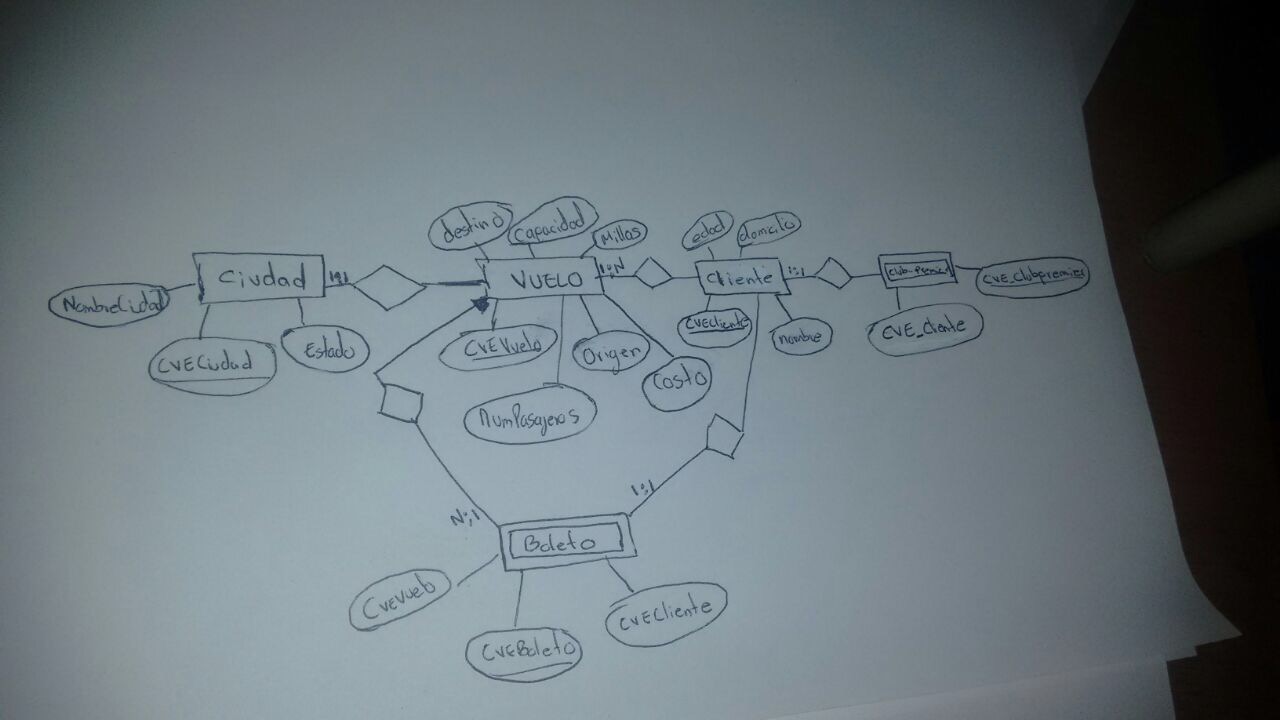 destino
Capacidad
Millas
edad
domicilo
Ciudad
1:1
VUELO
1:N
Cliente
1:1
Club-Premier
CVE_Clubpremier
NombreCiudad
CVECiudad
Estado
CVEVuelo
Origen
Costo
CVECliente
nombre
CVE_Cliente
NumPasajeros
N:1
1:1
Boleto
CVEVuelo
CVEBoleto
CVECliente